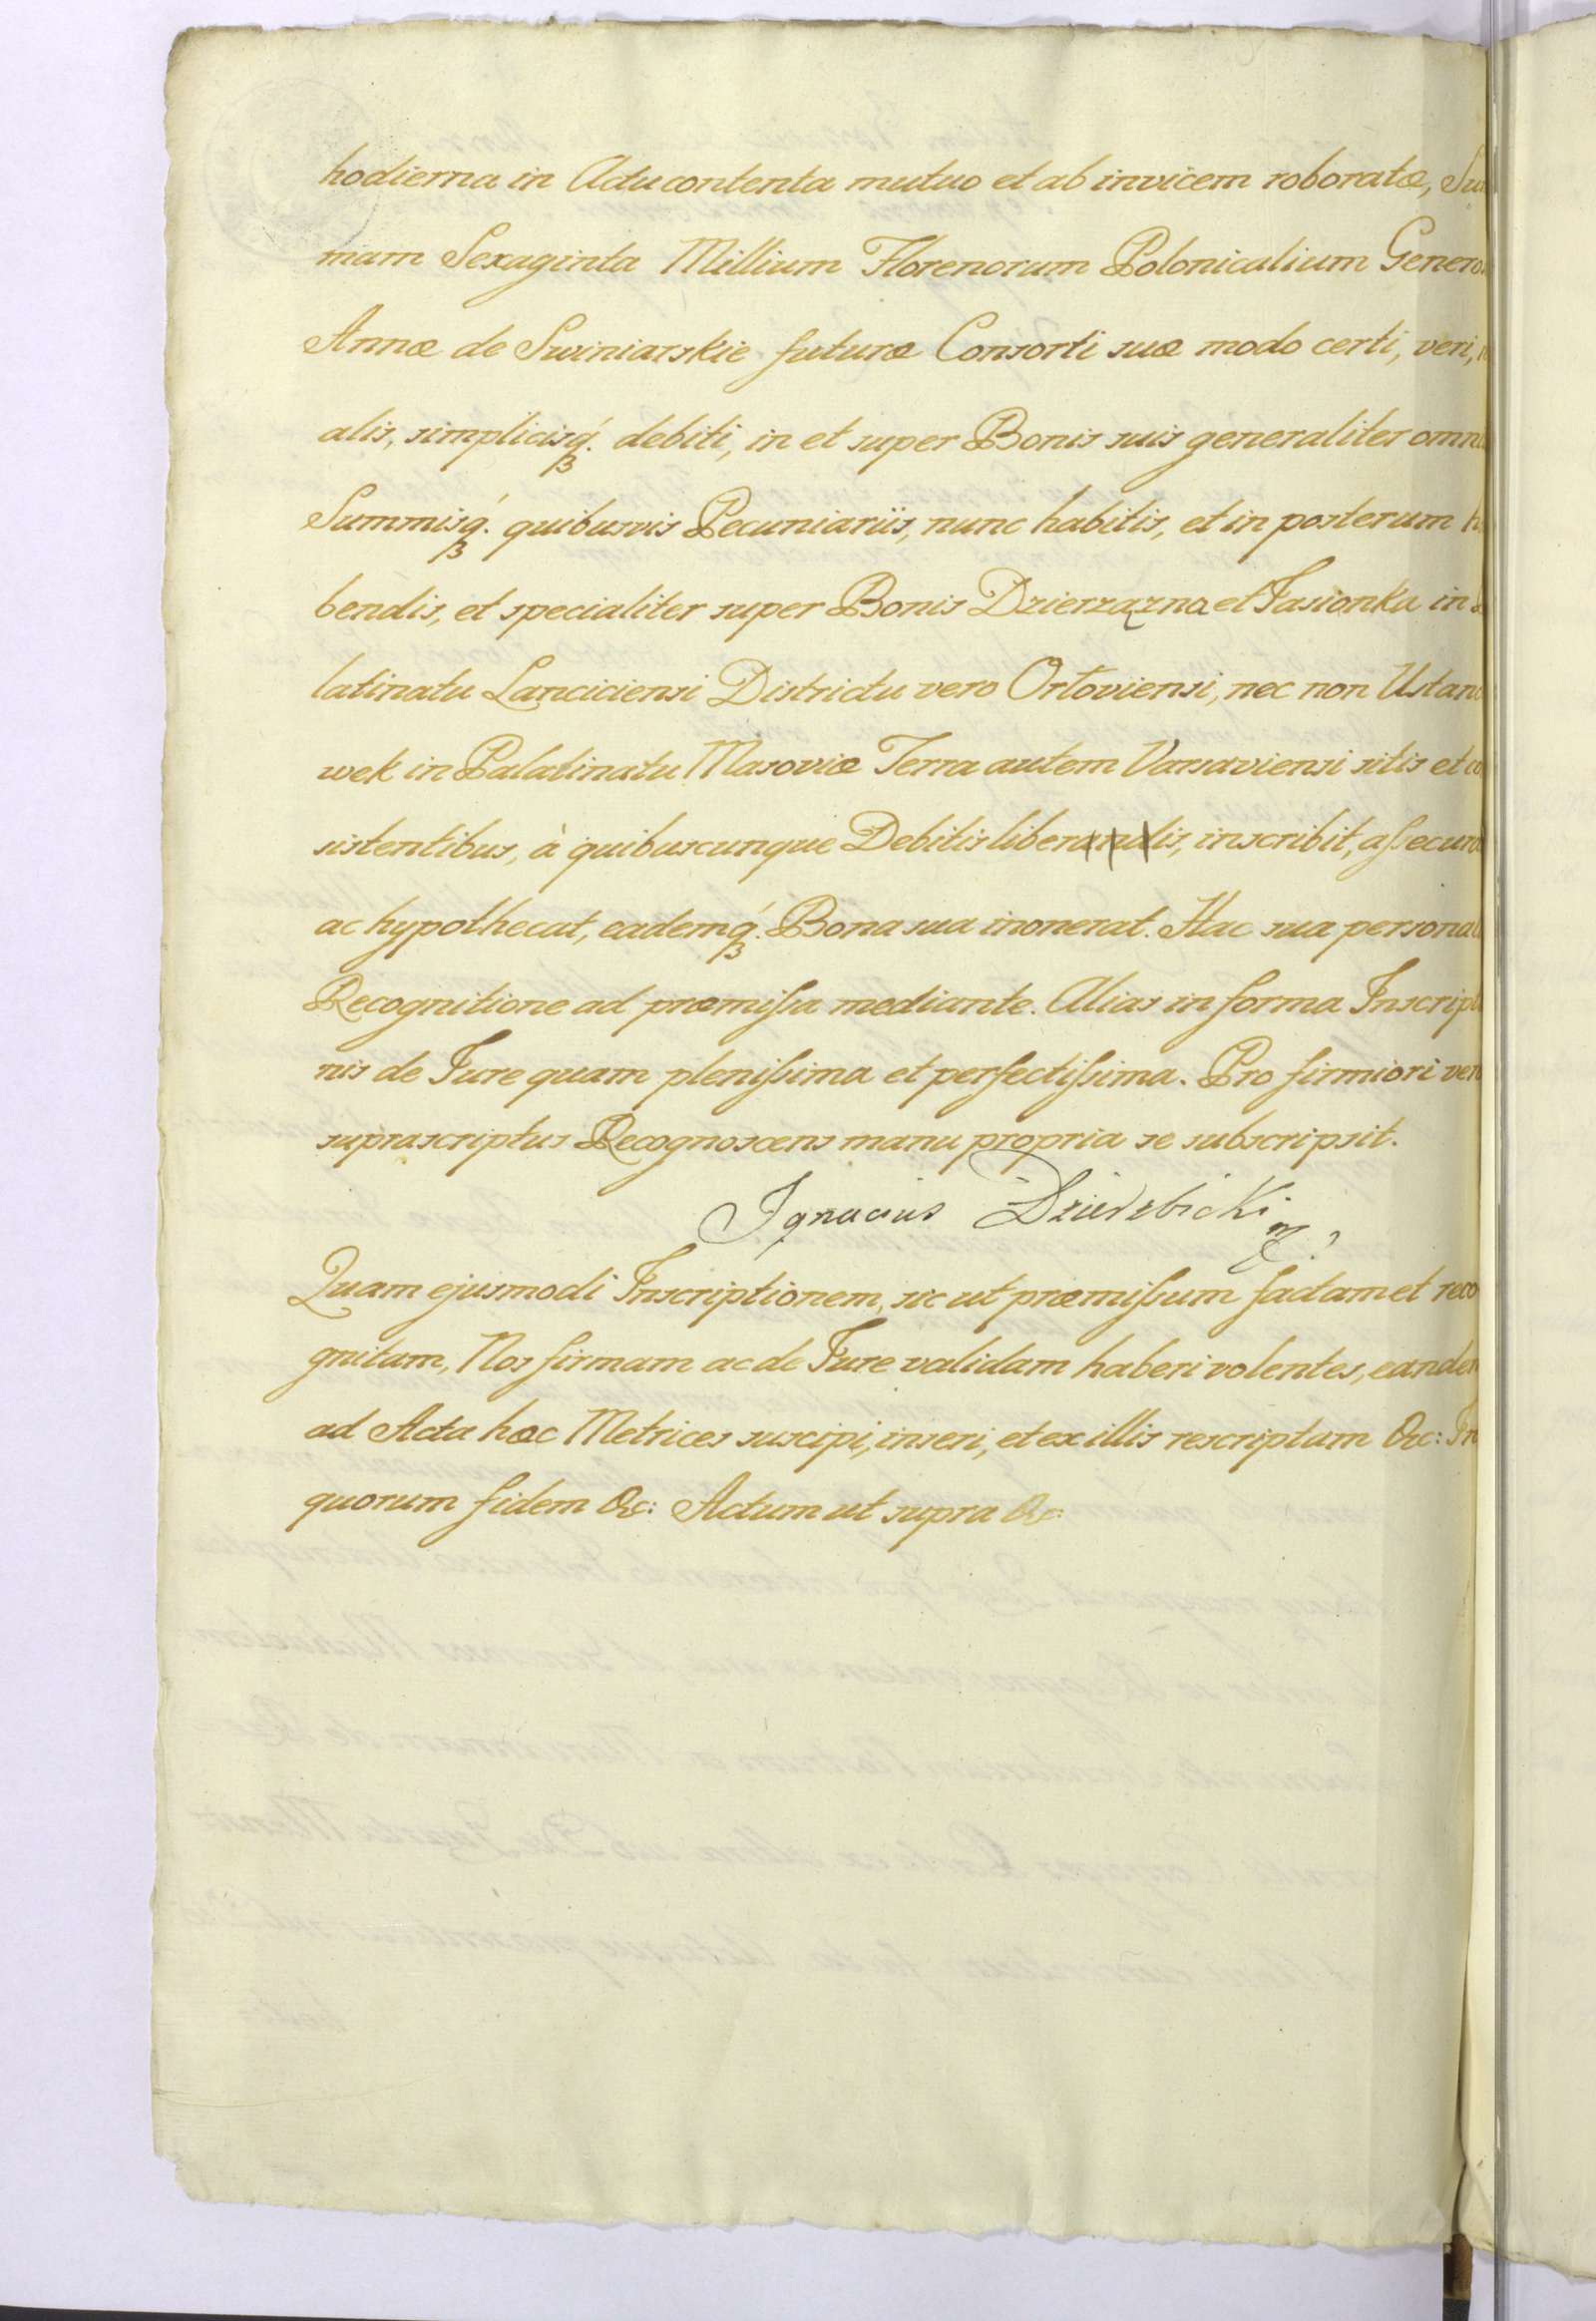 hodierna in Actu contenta mutuo et ab invicem roboratæ, Su
mam Sexaginta Millium Florenorum Polonicalium Genero
Annæ de Swiniarskie futuræ Consorti suæ modo certi, veri,
alis, simplicisq́ꝫ. debiti, in et super Bonis suis generaliter omn
Summisq́ꝫ. quibusvis Pecuniariis, nunc habitis, et in posterum h
bendis, et specialiter super Bonis Dzierzązna et Jasionka in
latinatu Lanciciensi Districtu vero Orłoviensi, nec non Ustano
wek in Palatinatu Masoviæ Terra autem Varsaviensi sitis et co
sistentibus, à quibuscunque Debitis liberandis, inscribit, aſsecura
ac hypothecat, eademq́ꝫ. Bona sua inonerat. Hac sua persona
Recognitione ad præmiſsa mediante. Alias in forma Inscripti
nis de Jure quam pleniſsima et perfectiſsima. Pro firmiori vero
suprascriptus Recognoscens manu propria se subscripsit.
Ignacius Dzierzbicki
Quam ejusmodi Inscriptionem, sic ut præmiſsum factam et reco
gnitam, Nos firmam ac de Jure validam haberi volentes, eandem
ad Acta hæc Metrices suscipi, inseri, et ex illis rescriptum &c: In
quorum fidem &c: Actum ut supra &c: